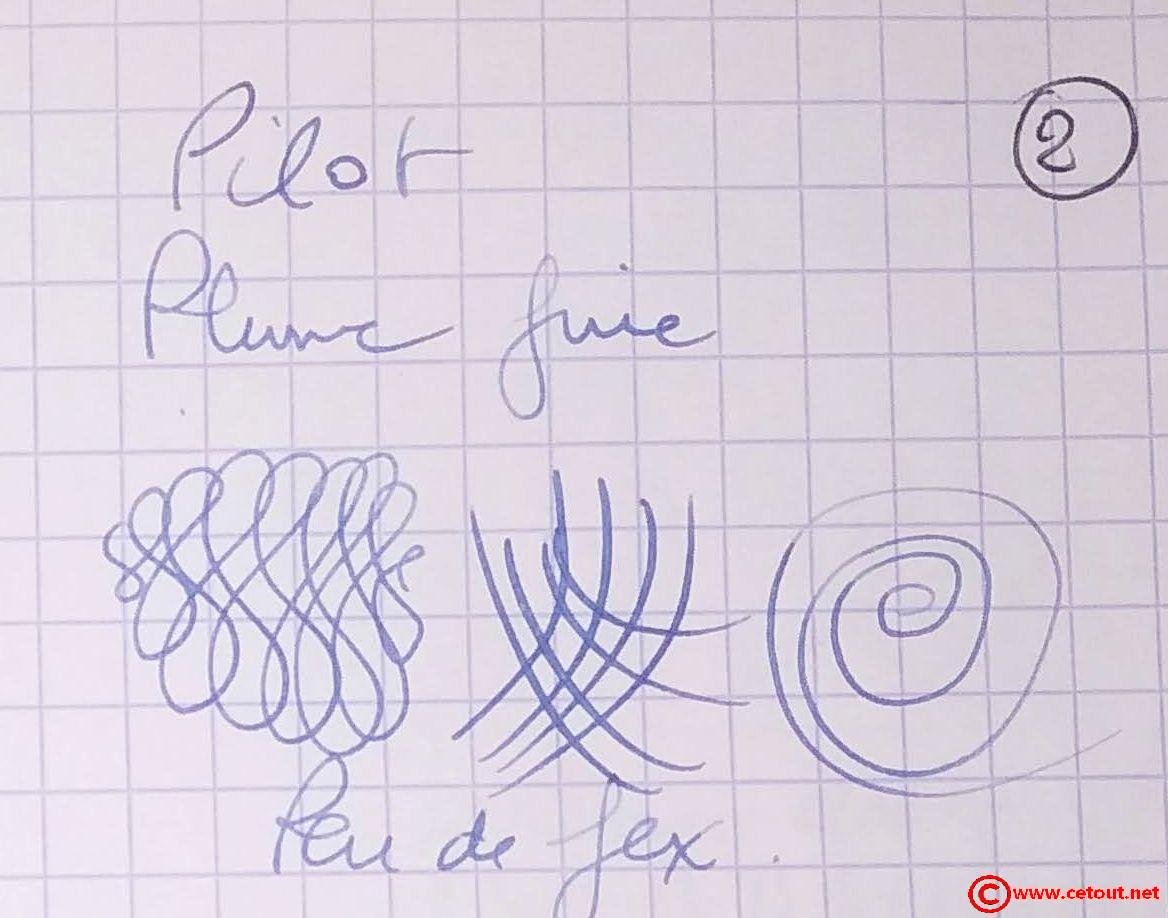 Pilot
2
Plume fine
Peu de flex.
©www.cetout.net